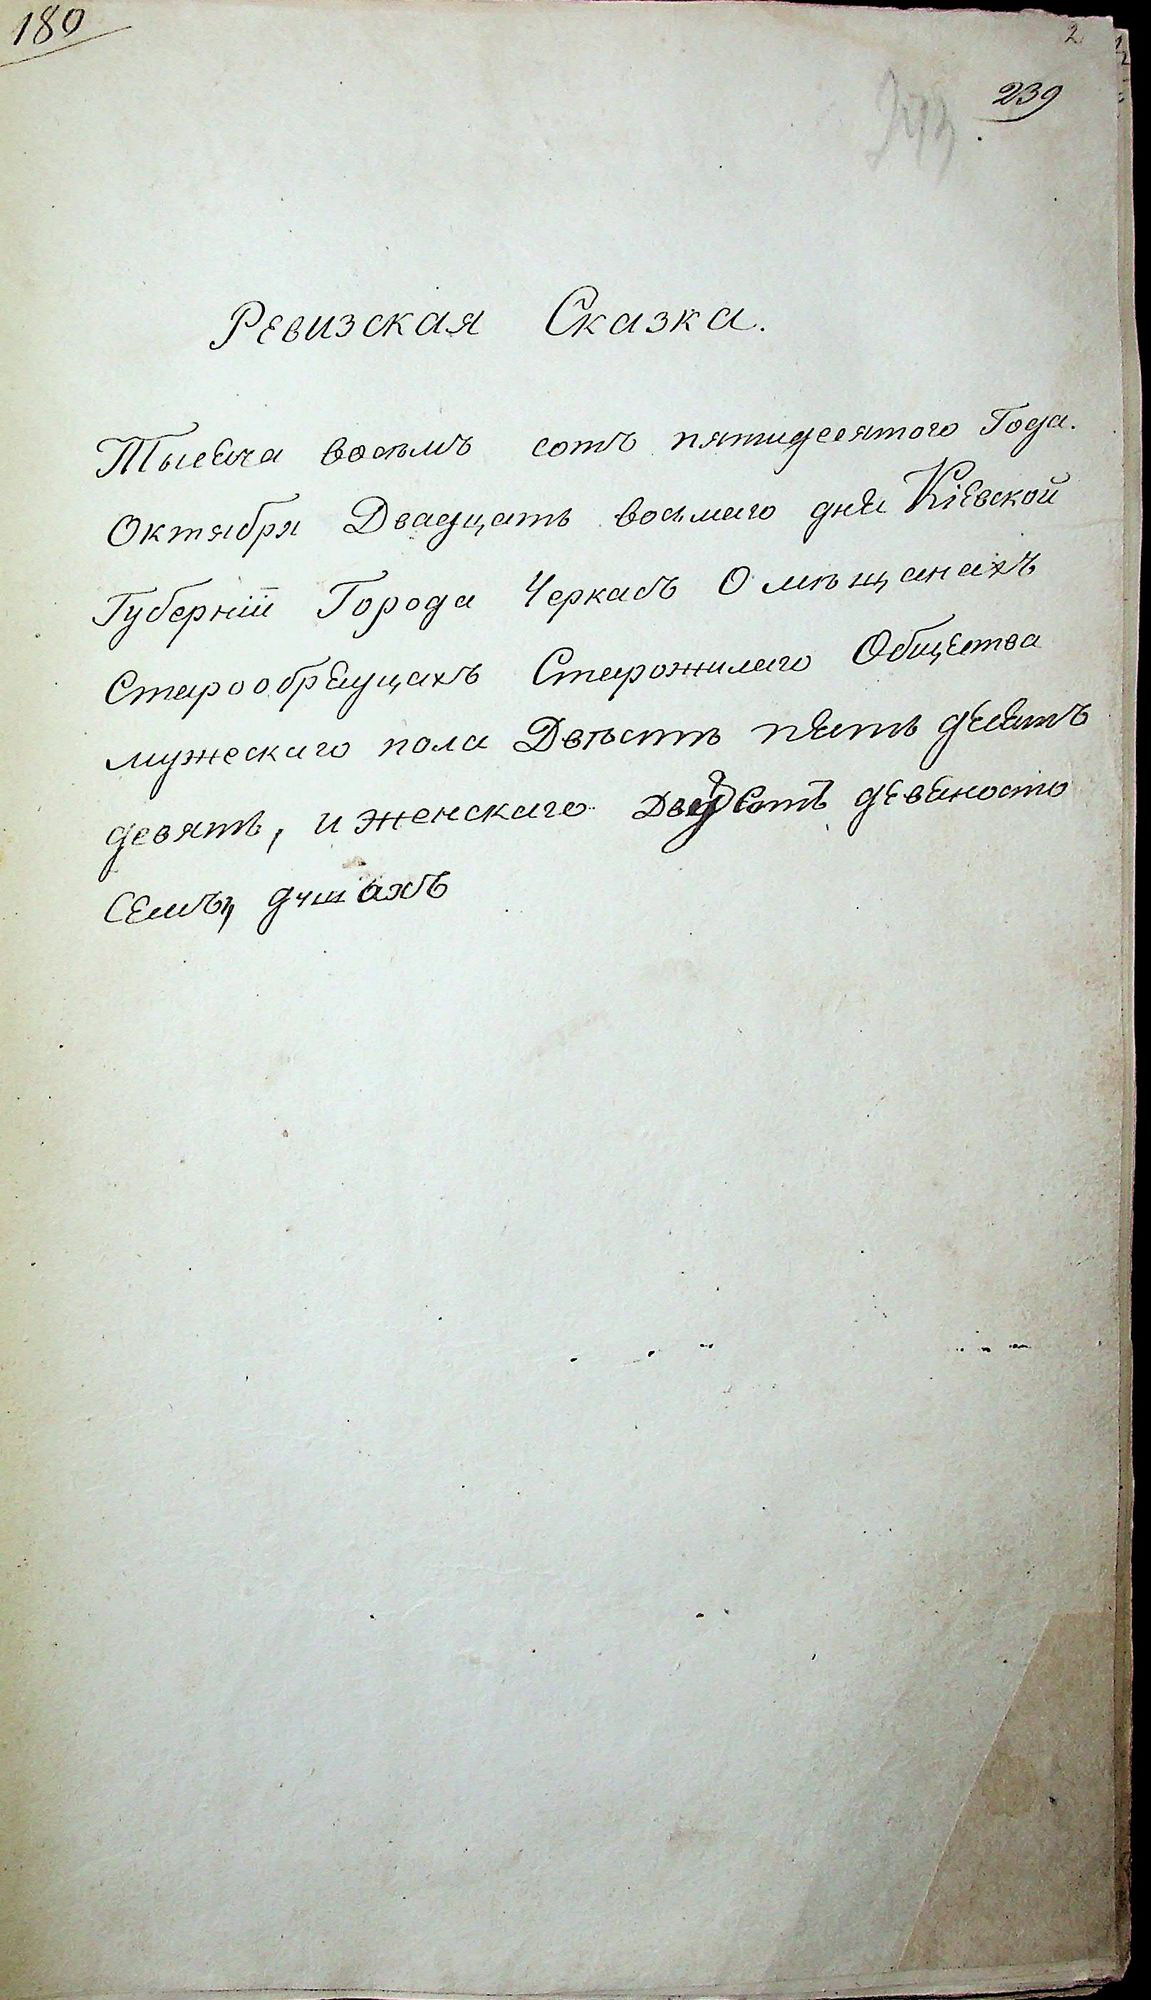 180
2
239
Ревизская Сказка.
Тысяча восемь сотъ пятидесятого Года.
Октября Двадцать восьмаго дня Кіевской
Губерніи Города Черкасъ О мѣщанахъ
Старообрядцахъ Старожилаго Общества
мужескаго пола Двѣсти пять десятъ
девять, и женскаго двухъ сотъ девяносто
семи, душахъ